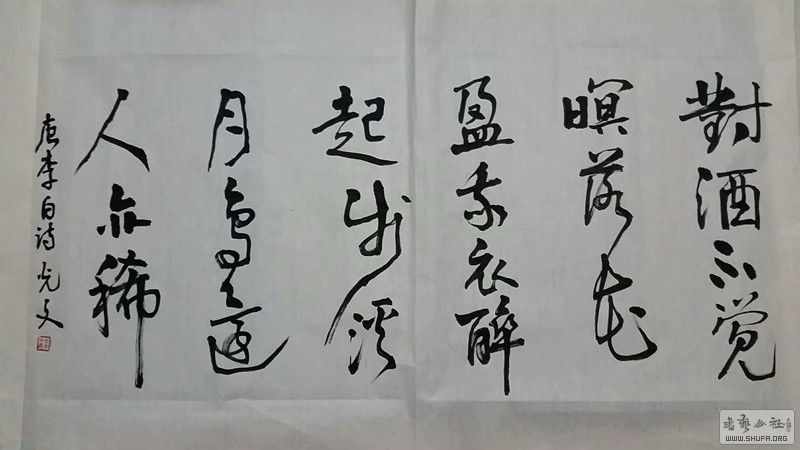 對酒不觉
暝落花
盈我衣醉
起步溪
月鳥還
人亦稀
唐李白诗 光文
書法公社
WWW.SHUFA.ORG